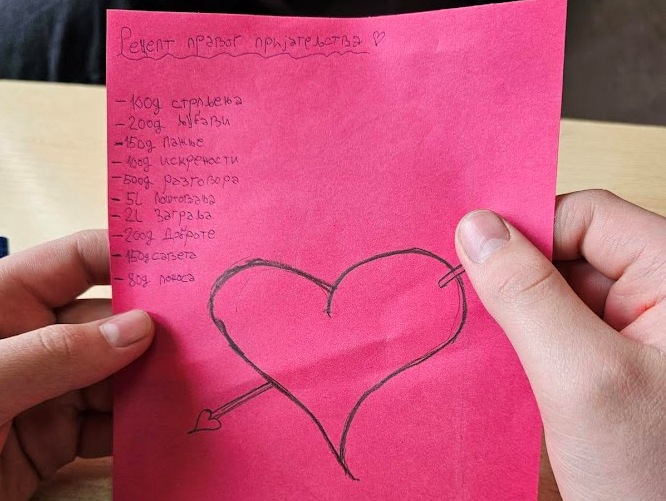 Рецепт правог пријатељства
- 100g стрпљења
- 200g љубави
- 150g пажње
- 100g искрености
- 500g разговора
- 5L поштовања
- 2L Заграва
- 200g Доброте
- 150g савета
- 80g поноса